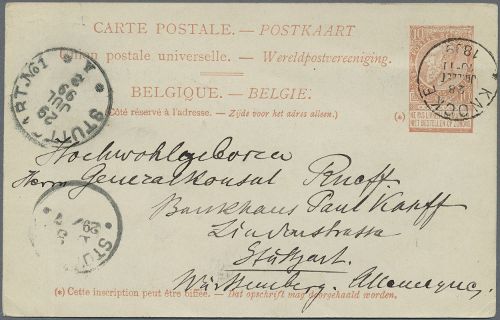 CARTE POSTALE. — POSTKAART
Union postale universelle. — Wereldpostvereeniging.
BELGIQUE. — BELGIE.
(Côté réservé à l'adresse. — Zijde voor het adres alleen.)
(*)
10
NE PAS LIVRER
NIET BESTELLEN OP ZONDAG
KNOCKE
1899
STUTTGART. No 1
29
JUL
99
Hochwohlgeboren
Herrn Generalkonsul Rueff
Bankhaus Paul Kapff
Lindenstrasse
Stuttgart.
Württemberg. Allemagne.
STU
29/
(*) Cette inscription peut être biffée. — Dat opschrift mag doorgehaald worden.